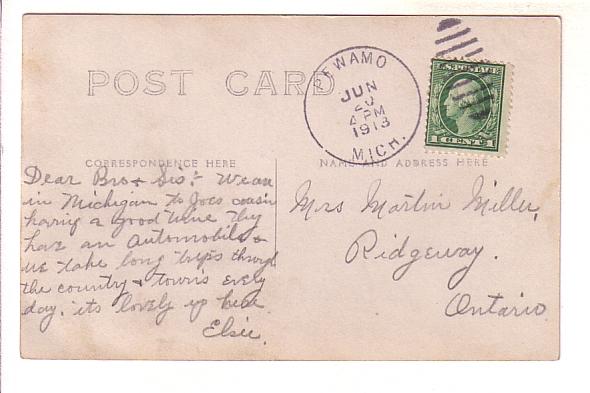 POST CARD
PEWAMO
JUN
20
4 PM
1913
MICH.
U.S. POSTAGE
1 CENT 1
CORRESPONDENCE HERE
NAME AND ADDRESS HERE
Dear Bro + Sis:- We are
in Michigan to Joes cousin
having a good time They
hav an automobile &
we take long trips through
the country & towns every
day. its lovely up here.
Elsie.
Mrs Martin Miller,
Ridgeway.
Ontario.